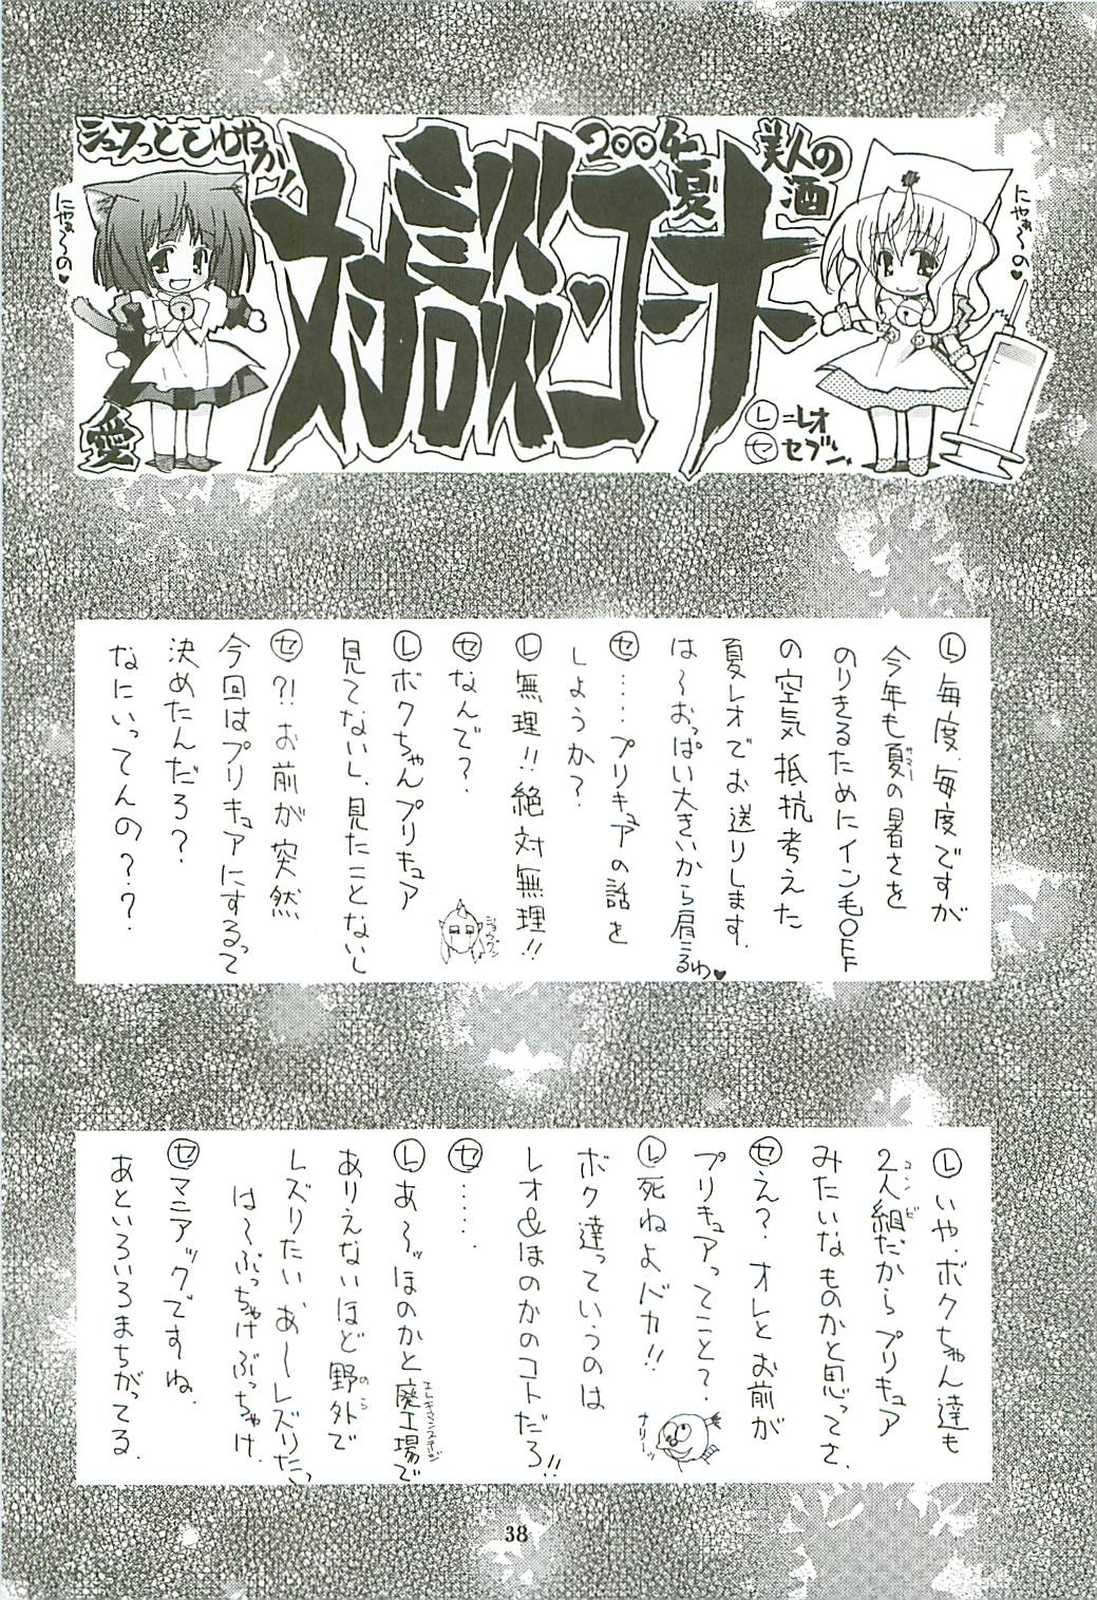 シュワっとさわやか!
対談コーナー
2004夏
美人の酒
にゃぁ〜の♥
にゃぁ〜の♥
愛
レ=レオ
セ=セブン
レ 毎度、毎度ですが
今年も夏の暑さを
サマー
のりきるためにイン毛OFF
の空気抵抗考えた
夏レオでお送りします。
は〜おっぱい大きいから肩こるわ♥
セ ……プリキュアの話を
しようか?
レ 無理!!絶対無理!!
セ なんで?
レ ボクちゃんプリキュア
見てないし、見たことないし
セ ?!お前が突然
今回はプリキュアにするって
決めたんだろ?
なにいってんの??
レ いや、ボクちゃん達も
2人組だからプリキュア
コンビ
みたいなものかと思ってさ、
セ え?オレとお前が
プリキュアってこと?
レ 死ねよバカ!!
ボク達っていうのは
レオ&ほのかのコトだろ!!
ナリーッ
セ ……
レ あ〜ッほのかと廃工場で
エレキマンステージ
ありえないほど野外で
のら
レズりたいあ〜レズりたい
は〜ぶっちゃけぶっちゃけ、
セ マニアックですね、
あといろいろまちがってる、
38